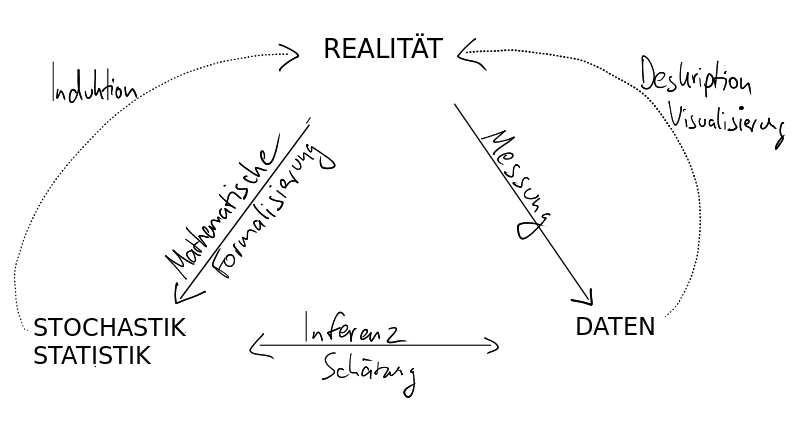 REALITÄT
Induktion
Deskription
Visualisierung
Mathematische
Formalisierung
Messung
STOCHASTIK
STATISTIK
DATEN
Inferenz
Schätzung